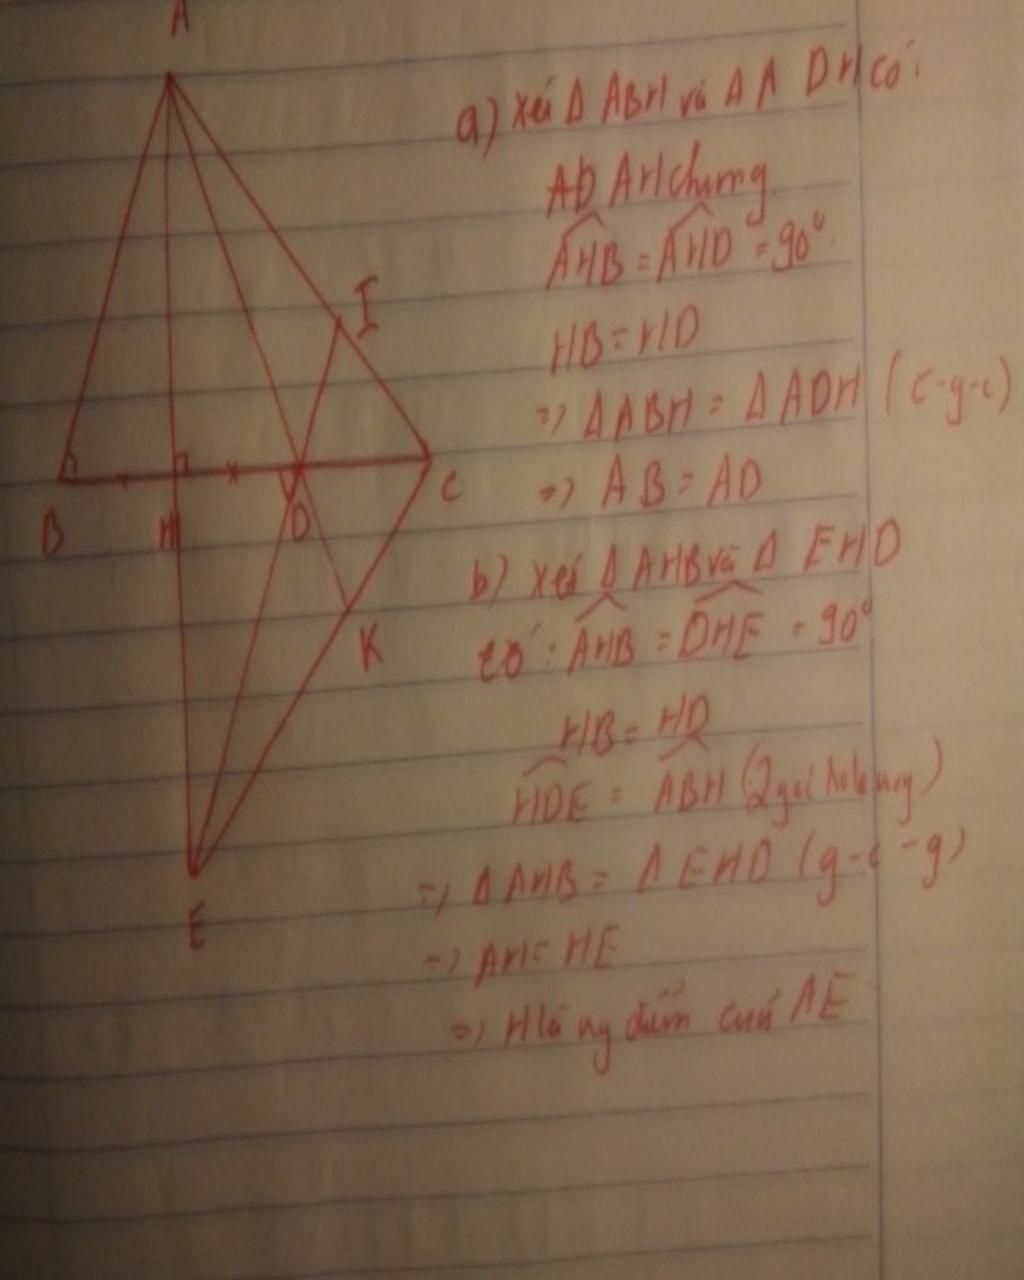 A
I
B
H
D
C
K
E
a) Xét Δ ABH và Δ A DH có:
AH chung
AHB = AHD = 90°
HB = HD
=> Δ ABH = Δ ADH (c-g-c)
=> AB = AD
b) Xét Δ AHB và Δ EHD
có: AHB = DHE = 90°
HB = HD
HDE = ABH (2 góc
=> Δ AHB = Δ EHD (g-c-g)
=> AH = HE
=> H là điểm của AE